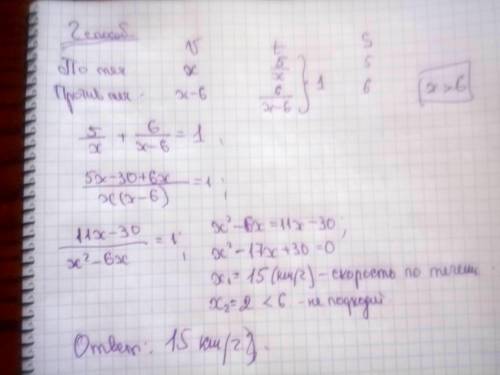 2 способ
V t S
По теч x 5/x 5
Против теч. x-6 6/(x-6) } 1 6 x>6
5/x + 6/(x-6) = 1;
(5x-30+6x)/(x(x-6)) = 1;
(11x-30)/(x²-6x) = 1; x²-6x=11x-30;
x²-17x+30=0
x₁=15 (км/г) - скорость по течен
x₂=2 <6 - не подходит
Ответ: 15 км/г.